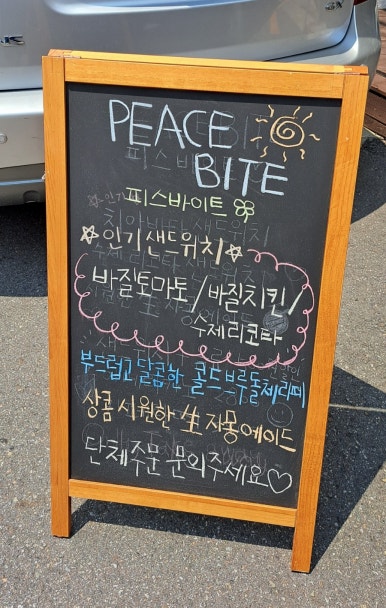 PEACE
BITE
피스바이트
☆인기샌드위치☆
바질토마토/바질치킨/
수제리코타
부드럽고 달콤한 콜드브루돌체라떼
상콤 시원한 生 자몽에이드
단체주문 문의주세요♡